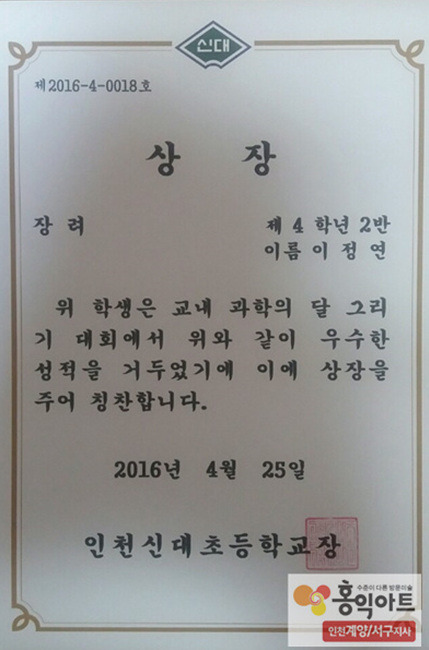 신대
제2016-4-0018호
상 장
장 려
제 4 학년 2반
이름 이 정 연
위 학생은 교내 과학의 달 그리
기 대회에서 위와 같이 우수한
성적을 거두었기에 이에 상장을
주어 칭찬합니다.
2016년 4월 25일
인천신대초등학교장
수준이 다른 방문미술
홍익아트
인천계양/서구지사